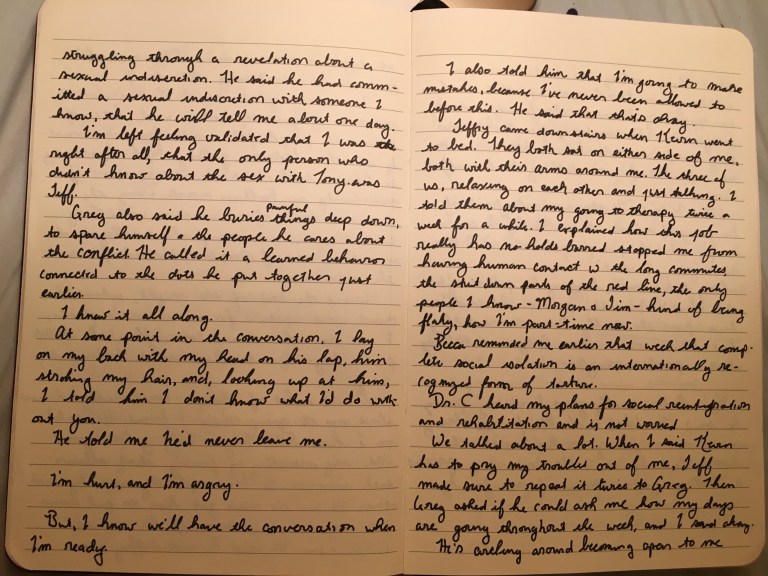 struggling through a revelation about a
sexual indiscretion. He said he had comm-
itted a sexual indiscretion with someone I
know, that he will tell me about one day.
I'm left feeling validated that I was
right after all, that the only person who
didn't know about the sex with Tony was
Jeff.
Greg also said he buries painful things deep down,
to spare himself & the people he cares about
the conflict. He called it a learned behavior
connected to the dots he put together just
earlier.
I knew it all along.
At some point in the conversation, I lay
on my back with my head on his lap, him
stroking my hair, and, looking up at him,
I told him I don't know what I'd do with-
out you.
He told me he'd never leave me.
I'm hurt, and I'm angry.
But, I know we'll have the conversation when
I'm ready.
I also told him that I'm going to make
mistakes, because I've never been allowed to
before this. He said that that's okay.
Jeffry came downstairs when Kevin went
to bed. They both sat on either side of me,
both with their arms around me. The three of
us, relaxing on each other and just talking. I
told them about my going to therapy twice a
week for a while. I explained how this job
really has no holds barred stopped me from
having human contact w the long commutes,
the shut down parts of the red line, the only
people I know - Morgan & Jim - kind of being
flaky, how I'm part-time now.
Becca reminded me earlier that week that comp-
lete social isolation is an internationally re-
cognized form of torture.
Dr. C heard my plans for social reintegration
and rehabilitation and is not worried
We talked about a lot. When I said Kevin
has to pry my troubles out of me, Jeff
made sure to repeat it twice to Greg. Then
Greg asked if he could ask me how my days
are going throughout the week, and I said okay.
He's around becoming open to me